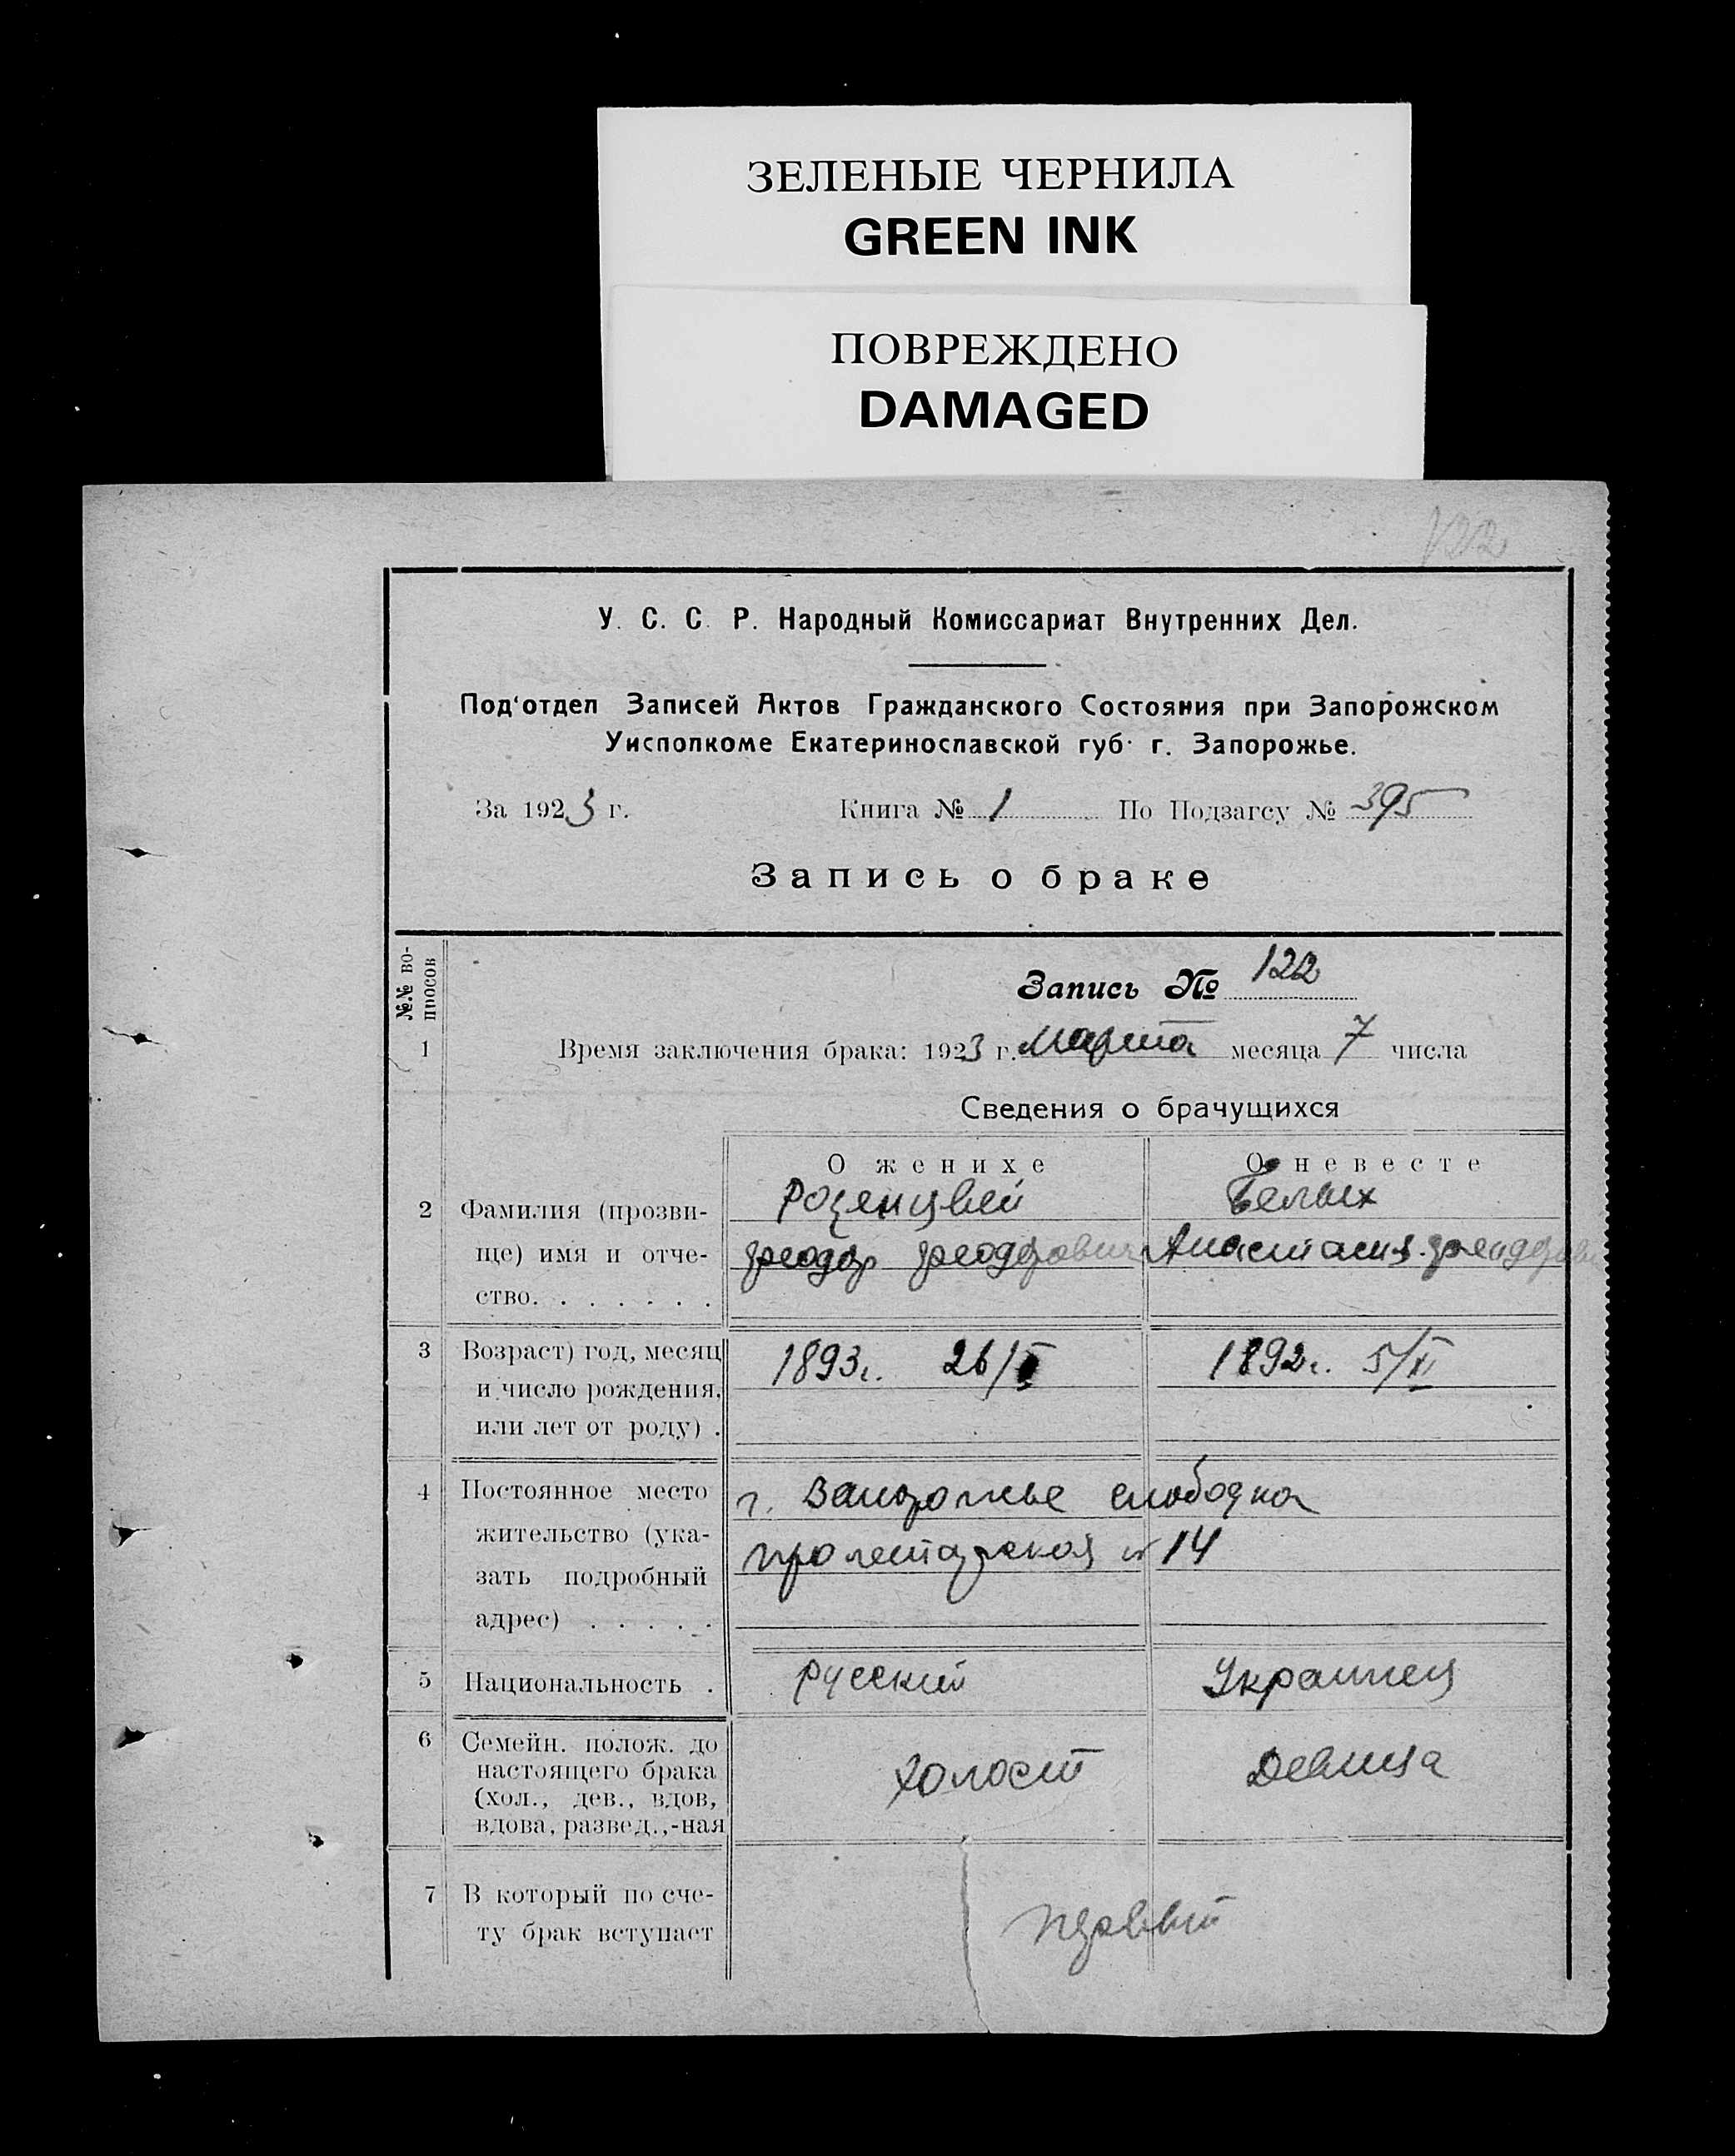 ЗЕЛЕНЫЕ ЧЕРНИЛА
GREEN INK
ПОВРЕЖДЕНО
DAMAGED
122
У. С. С. Р. Народный Комиссариат Внутренних Дел.
Под'отдел Записей Актов Гражданского Состояния при Запорожском
Уисполкоме Екатеринославской губ. г. Запорожье.
За 1923 г. Книга № 1 По Подзагсу № 395
Запись о браке
№.№ во-
просов
Запись № 122
1 Время заключения брака: 1923 г. Марта месяца 7 числа
Сведения о брачущихся
О женихе О невесте
2 Фамилия (прозви- Розенцвей Белых
ще) имя и отче- Феодор Феодорович Анастасия Феодоров
ство. . . . . . .
3 Возраст) год, месяц 1893г. 26/ 1892г. 5/XI
и число рождения,
или лет от роду) .
4 Постоянное место г. Запорожье слободка
жительство (ука- Пролетарская № 14
зать подробный
адрес) . . . . .
5 Национальность . Русский Украинец
6 Семейн. полож. до
настоящего брака холост девица
(хол., дев., вдов,
вдова, развед.,-ная
7 В который по сче- первый
ту брак вступает